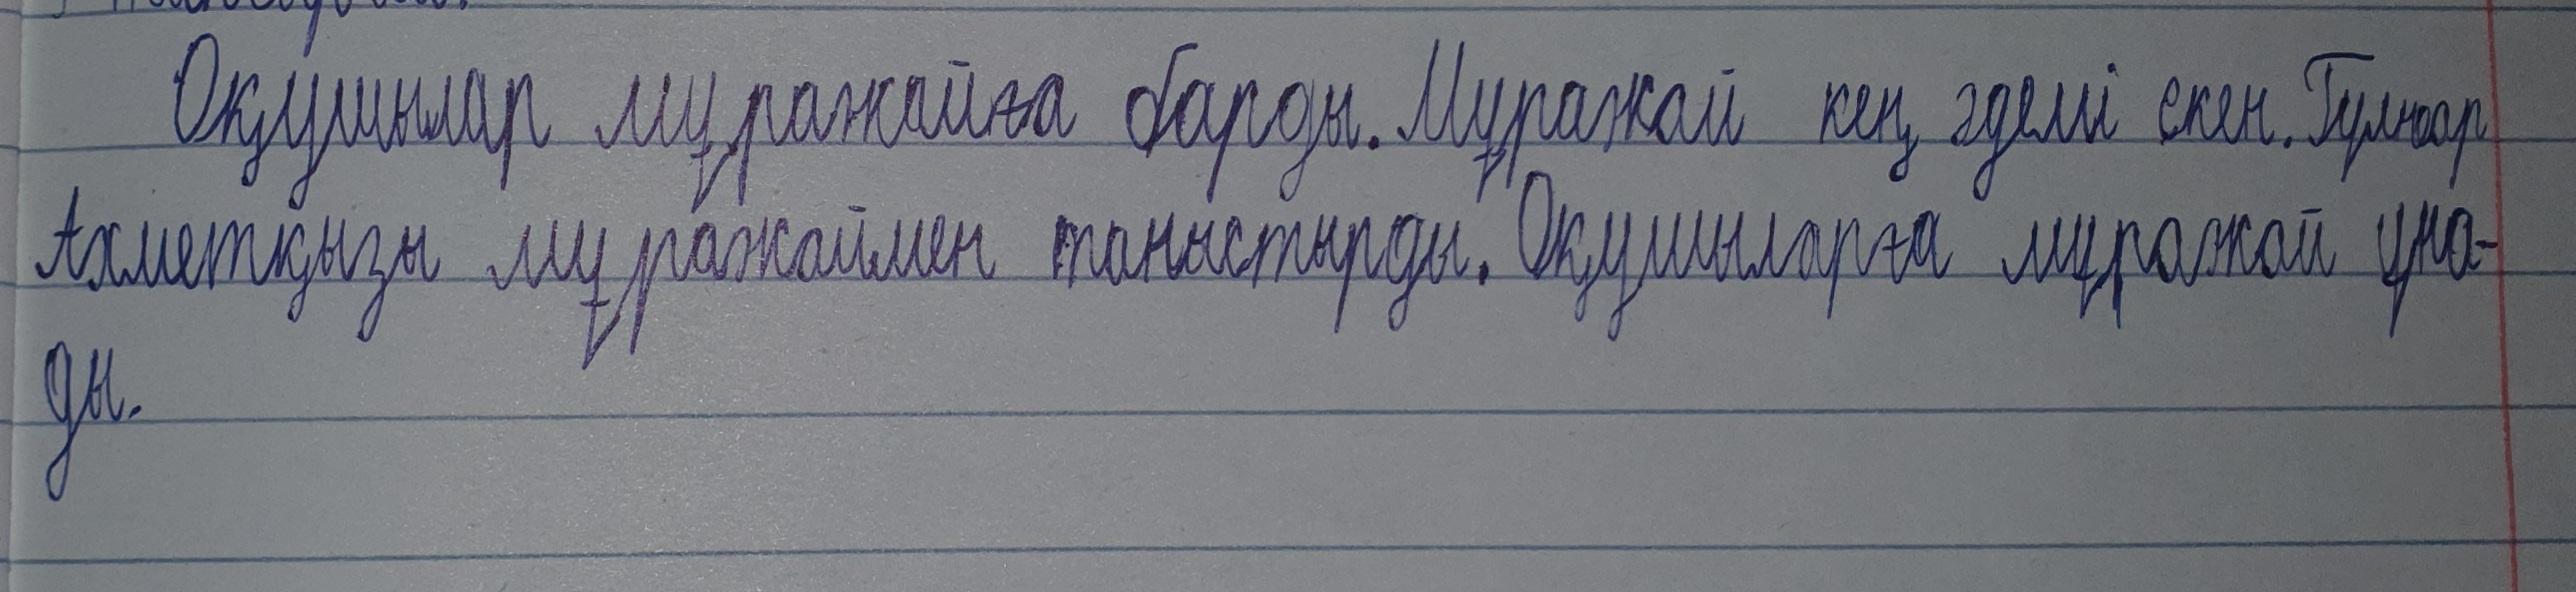 Оқушылар мұражайға барды. Мұражай кең әдемі екен. Гулнар
Ахметқызы мұражаймен таныстырды. Оқушыларға мұражай ұна-
ды.